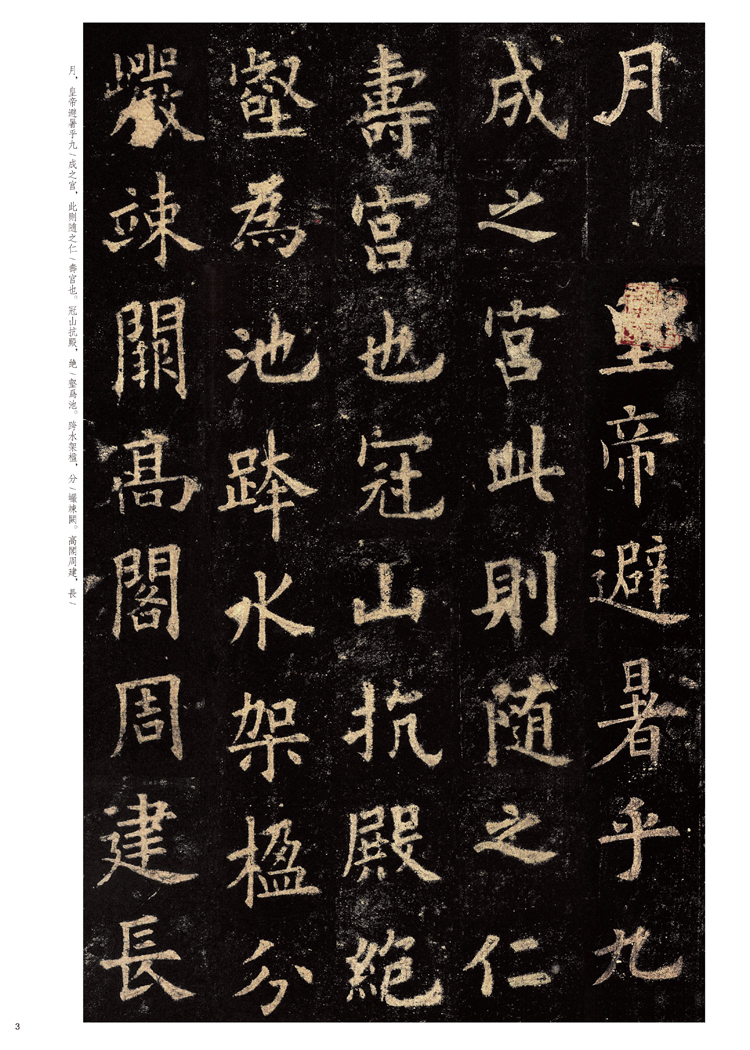 月皇帝避暑乎九
成之宮此則随之仁
壽宮也冠山抗殿絶
壑為池跨水架楹分
巖竦闕高閣周建長
月，皇帝避暑乎九／成之宫，此則随之仁／壽宫也。冠山抗殿，絶／壑爲池。跨水架楹，分／巖竦闕。高閣周建，長／
3